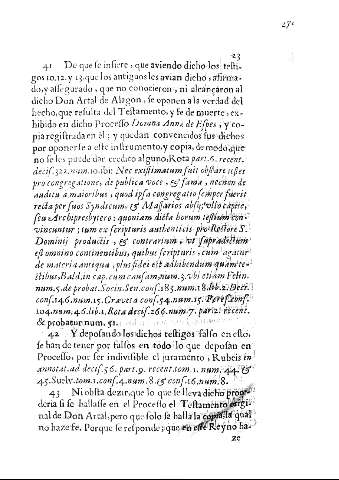 23
41 De que se infiere, que aviendo dicho los testi-
gos 10.12. y 13. que los antiguos les avian dicho, afirma-
do, y assegurado, que no conocieron, ni alcançaron al
dicho Don Artal de Alagon, se oponen a la verdad del
hecho, que resulta del Testamento, y fe de muerte, ex-
hibido en dicho Processo Iocuta Anna de Espes, y co-
pia registrada en èl; y quedan convencidos sus dichos
por oponerle a este instrumento, y copia, de modo, que
no se les puede dar credito alguno, Rota part.6. recent.
decis.322.num.10. ibi: Nec existimatum fuit obstare testes
pro congregatione, de publica voce, & fama, necnon de
auditu a maioribus, quod ipsa congregatio semper fuerit
recta per suos Syndicum, & Massarios absq; ullo capite,
seu Archipresbytero: quoniam dicta horum testium con-
vincuntur; tum ex scripturis authenticis pro Rectore S.
Dominij productis, & contrarium, ut supradictum
est omnino continentibus, quibus scripturis, cum agatur
de materia antiqua, plus fidei est adhibendum quam te-
stibus, Bald. in cap. cum causam, num.3. ubi etiam Felin.
num.5. de probat. Socin. Sen. conf.185. num.18. lib.2. Deci.
conf.146. num.15. Graveta conf.54. num.15. Peres conf.
104. num.46. lib.1. Rota decis.266. num.7. par.2. recent.
& probatur num. 51.
42 Y deposando los dichos testigos falso en esto,
se han de tener por falsos en todo lo que deposan en
Processo, por ser indivisible el juramento, Rubeis in
annotat. ad decis.56. part.9. recent. tom.1. num. 44. &
45. Suelv. tom.1. conf.4. num.8. & conf.16. num.8.
43 Ni obsta dezir, que lo que se lleva dicho proce-
deria si se hallasse en el Processo el Testamento origi-
nal de Don Artal, pero que solo se halla la copia, la qual
no haze fe. Porque se responde; que en este Reyno ha-
ze